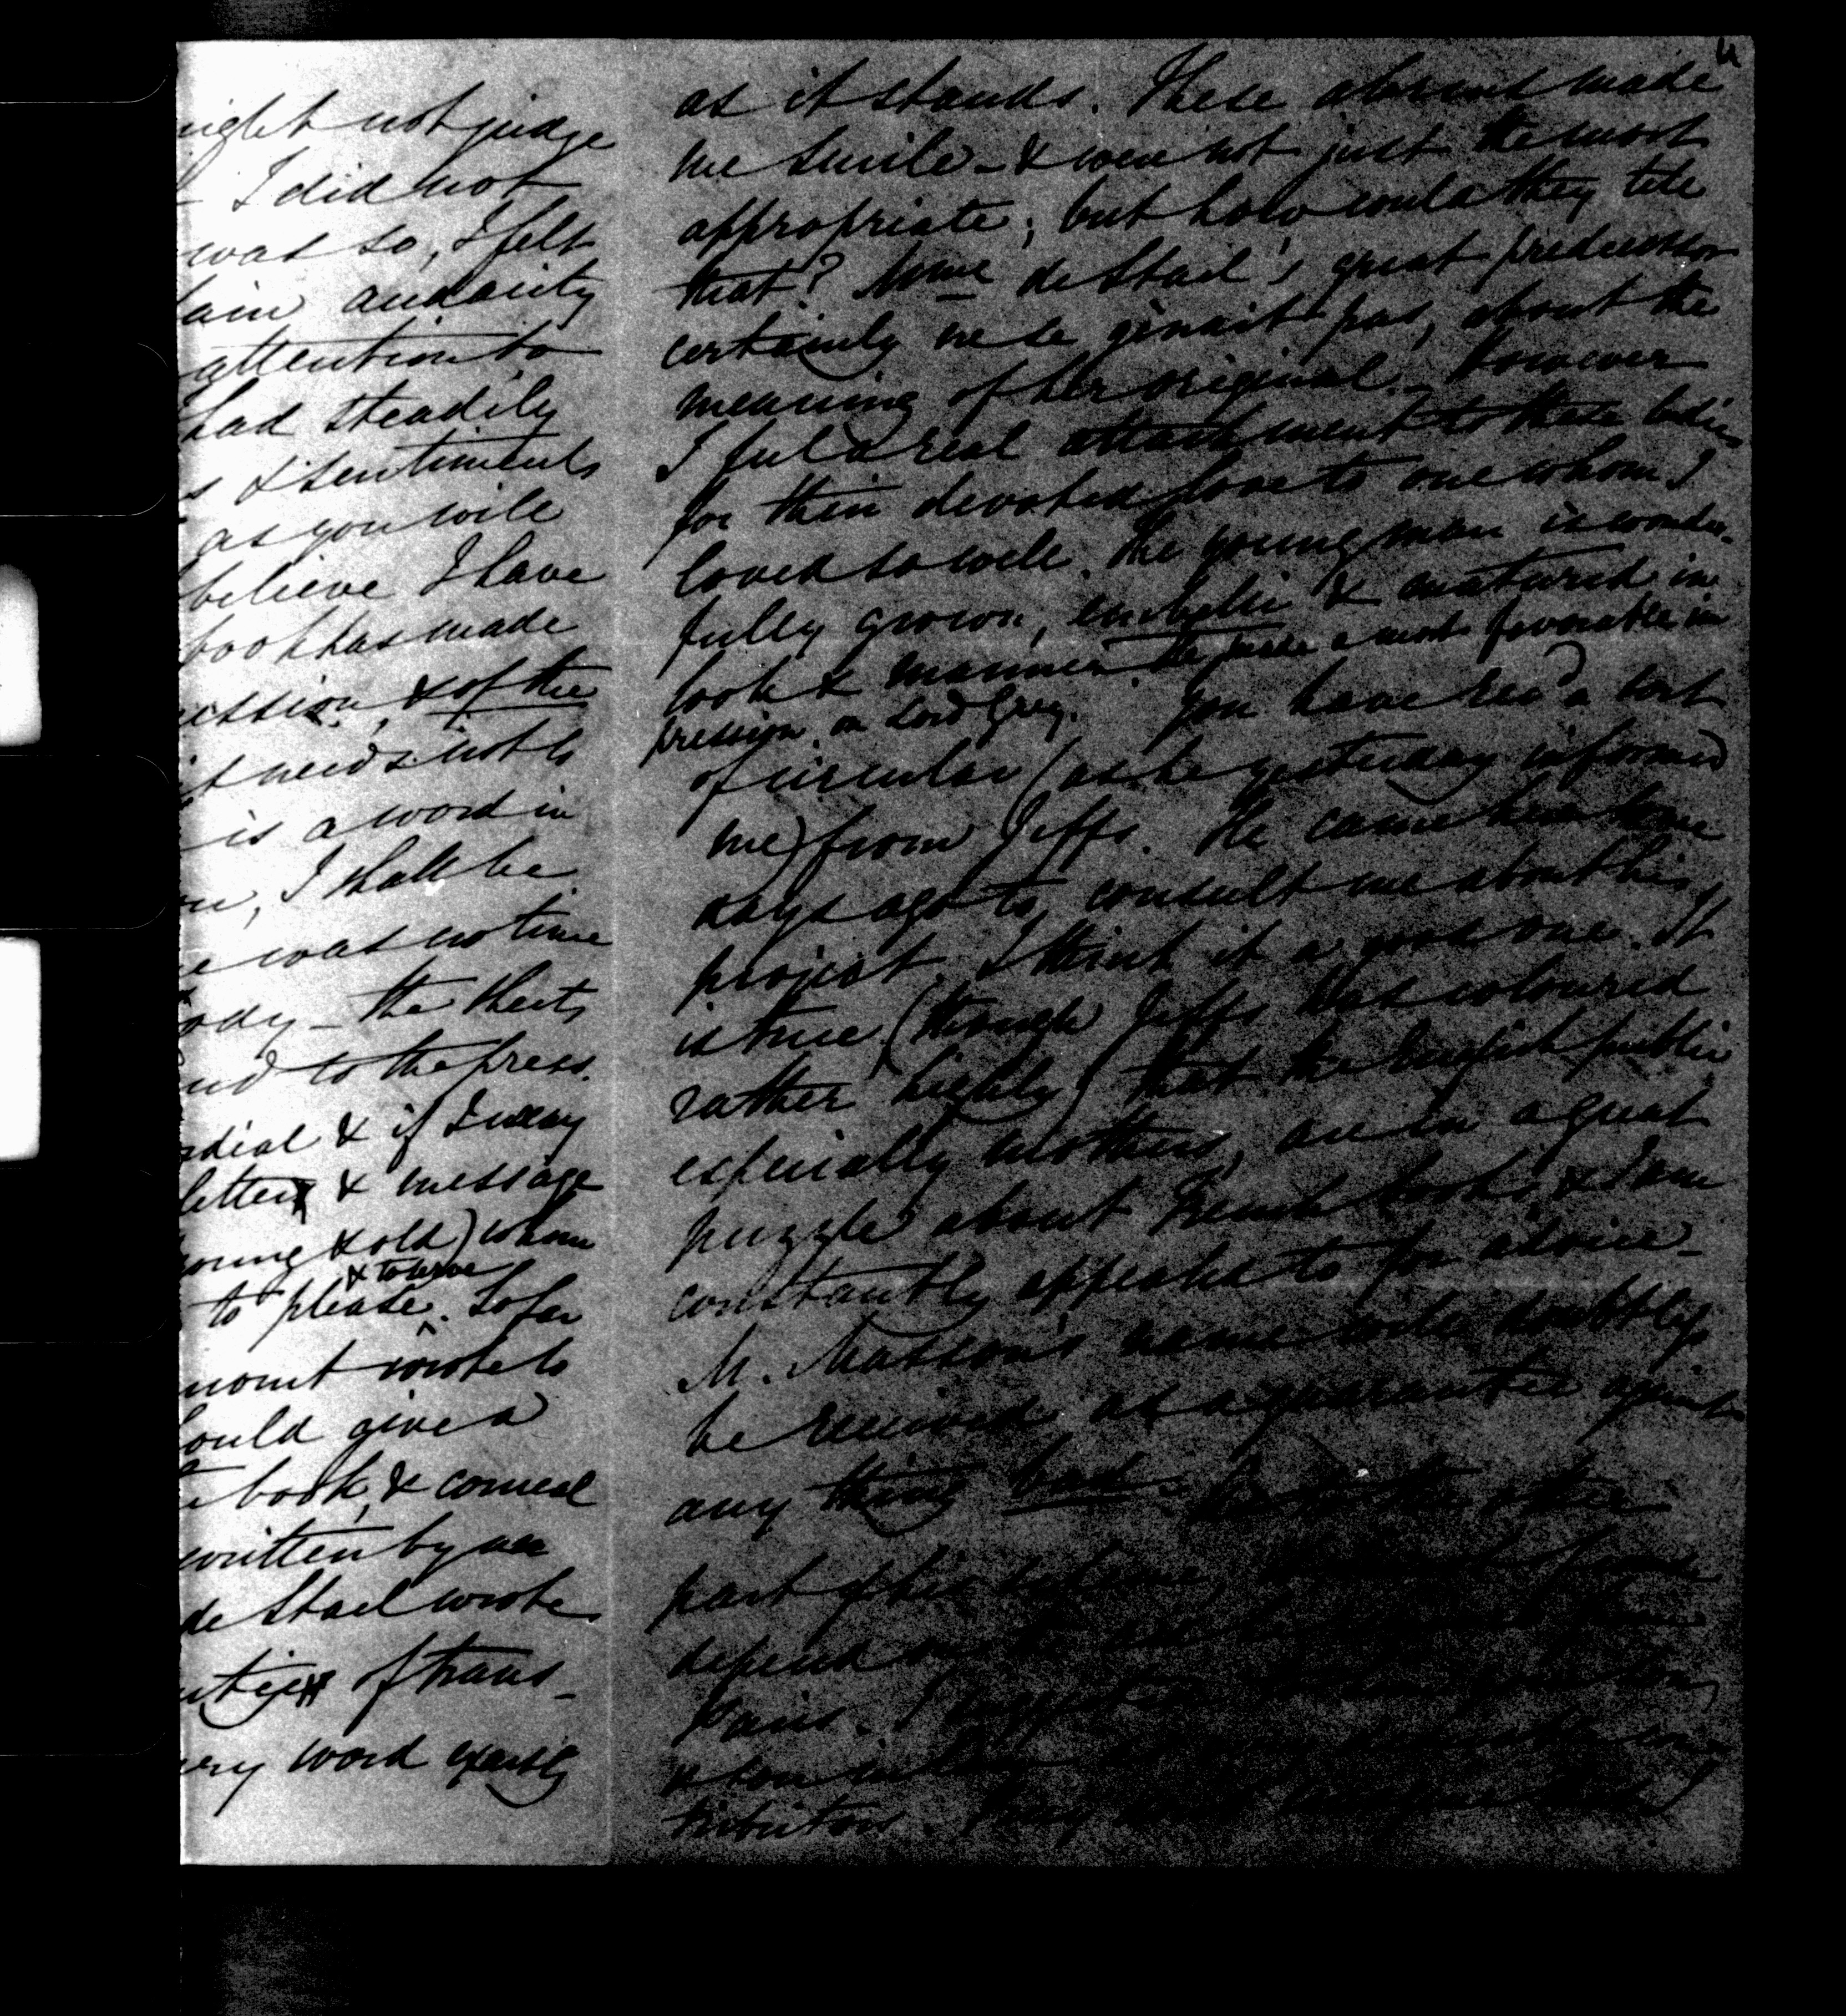 ight not judge
I did not
was so, I felt
ain audacity
attention to
had steadily
s & sentiments
as you will
believe I have
book has made
ession, & of the
it needs not to
is a word in
, I shall be
e was no time
ody – the sheets
nd to the press.
rdial & if I may
letters & message
oung & old) whom
& to serve
to please. So far
wrote to
ould give a
book, & conceal
written by
de Stael wrote
of trans-
ery word exactly
4
as it stands. These alarms made
me smile – & were not just the most
appropriate; but how could they tell
that? Mme de Stael's great predecessor
certainly ne se gênait pas, about the
meaning of her original. – However
I feel a real attachment to these ladies
for their devoted love to one whom I
loved so well. The young man is wonder-
fully grown, embelli & matured in
look & manner. He made a most favorable im
pression on Lord Grey. You have recd a sort
of circular (as he yesterday informed
me) from Jeffs. He came here some
days ago to consult me about his
project. I think it a good one. It
is true (though Jeffs has coloured
rather highly) that the English public
especially mothers, are in a great
puzzle about French books, & I am
constantly appealed to for advice –
M. Masson's name will doubtless
be received as a guarantee against
any thing bad. As to the other
part of his scheme, it must of course
depend on the
Paris. I suggested
& son in law as
tributors. They